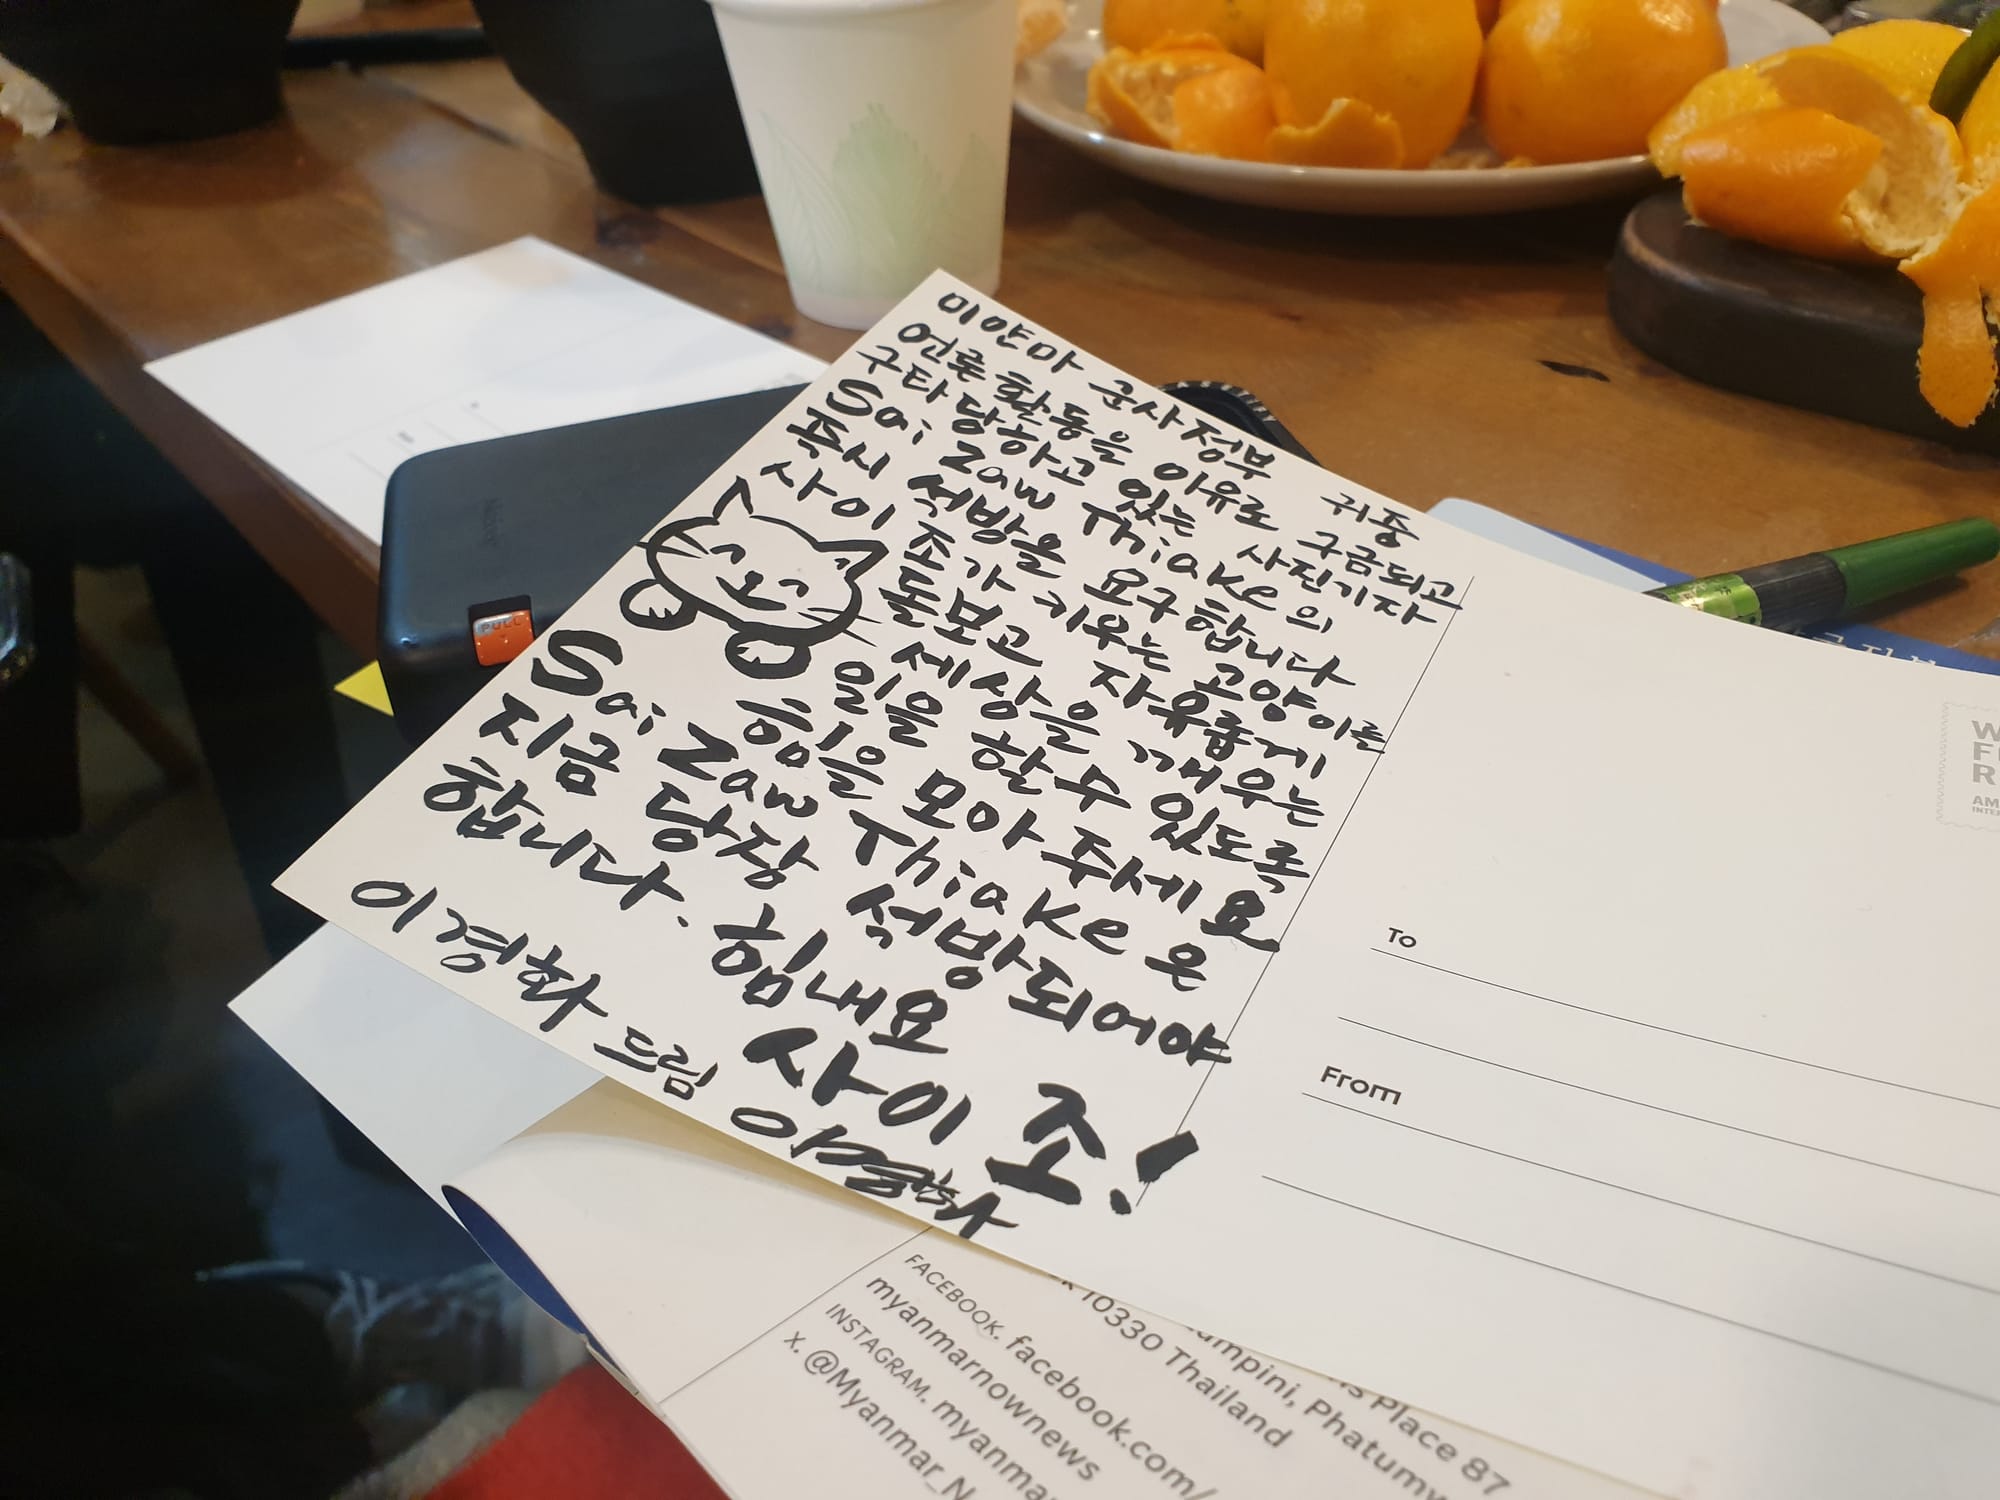 미얀마 군사정부 귀중
언론활동을 이유로 구금되고
구타당하고 있는 사진기자
Sai Zaw Thiake의
즉시 석방을 요구합니다
사이 조가 키우는 고양이를
돌보고 자유롭게
세상을 깨우는
일을 할 수 있도록
힘을 모아 주세요
Sai Zaw Thiake은
지금 당장 석방되어야
합니다. 힘내요
사이 조!
이경화 드림
PULL
To
From
W
F
R
AM
INTE
Place 87
umpini, Phatumw
10330 Thailand
FACEBOOK. facebook.com/
myanmarnownews
INSTAGRAM. myanma
X. @Myanmar_N